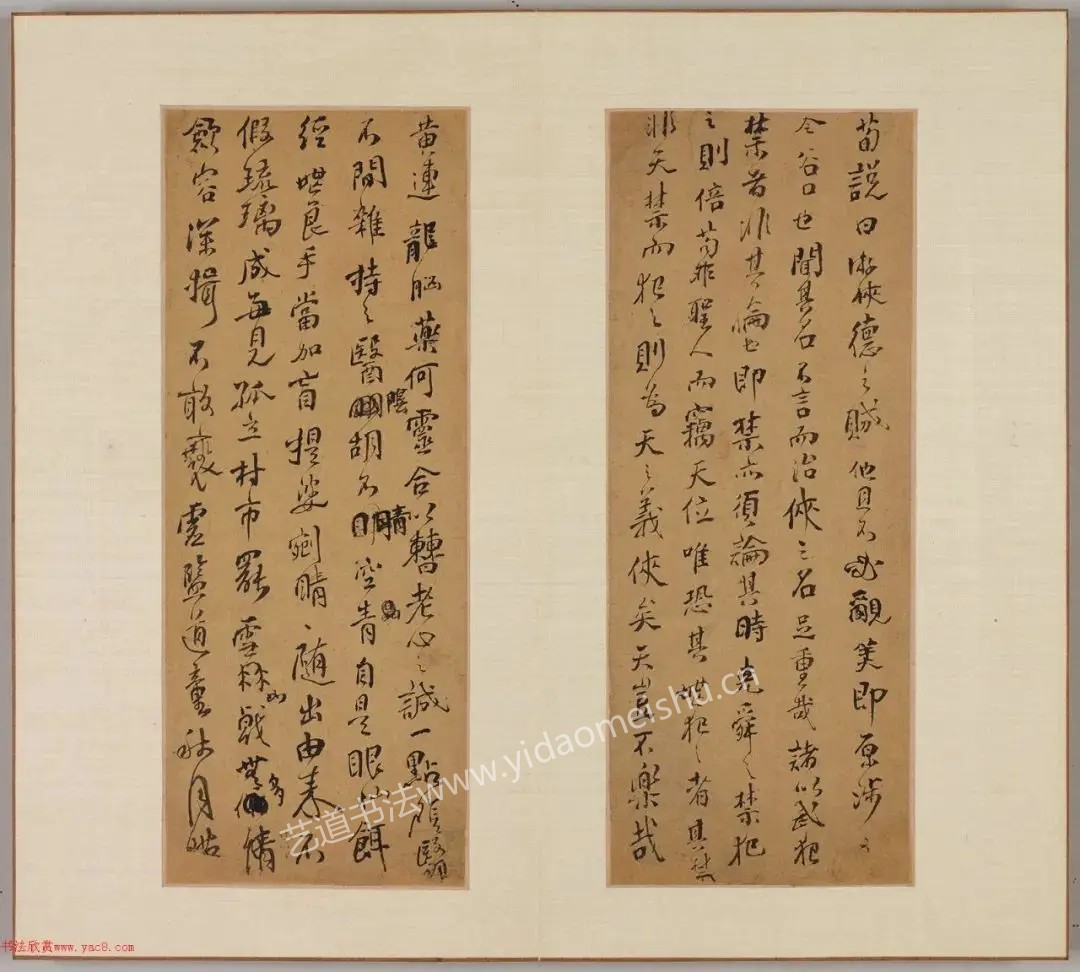 荀說曰游俠德之賊他且不必覼美即原涉之
令谷口也聞其名不言而治俠之名足重哉諸以武犯
禁者非其倫也即禁亦須論其時堯舜之禁犯
之則倍苟非聖人而竊天位唯恐其世犯之者其禁
非天禁而犯之則為天之義俠矣天豈不樂哉
黃連龍腦藥何靈合以轉老心之誠一點
不間雜持之醫陰胡名晴空青自是眼
經世良手當加盲提婆剜睛睛隨出由來不
假琉璃成每見孤立村市罷雪林如戟無多情
斂容深揖不敢褻虛盥道童秋月皓
艺道书法www.yidaomeishu.cn
书法欣赏www.yac8.com